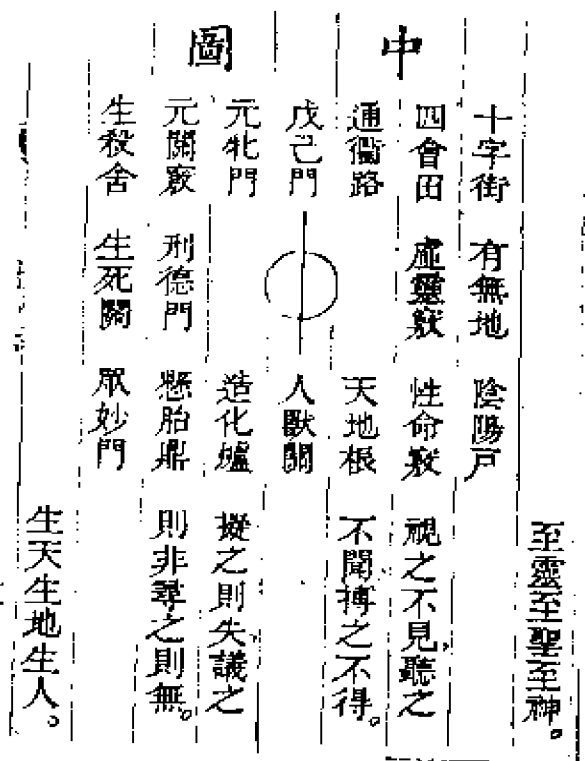 中圖
至靈至聖至神。
十字街 有無地 陰陽戸
四會田 虛靈竅 性命竅 視之不見聽之
通衢路 天地根 不聞搏之不得。
戊己門 人獸關
元牝門 造化爐 擬之則失議之
元關竅 刑德門 懸胎鼎 則非尋之則無。
生殺舍 生死關 眾妙門
生天生地生人。